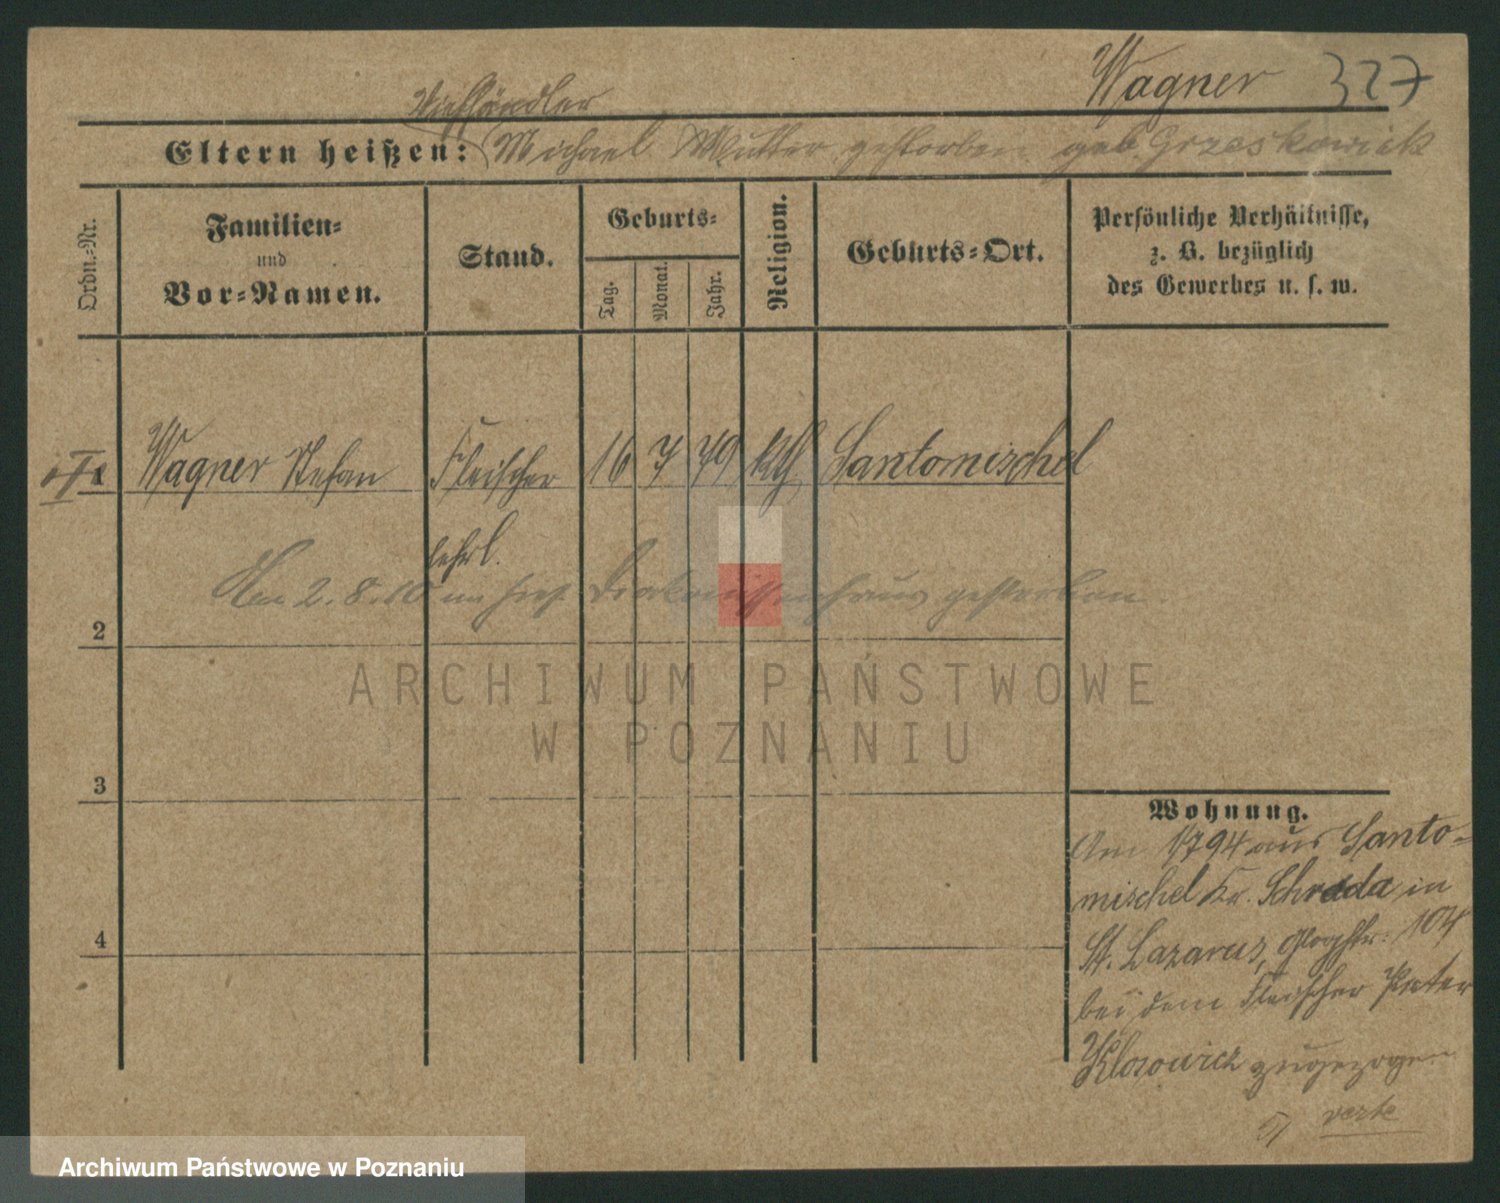 Wagner 327
Viehhändler
Eltern heißen: Michael Mutter gestorben geb. Grzeskowiak
Ordn.-Nr.
Familien-
und
Vor-Namen.
Stand.
Geburts-
Tag.
Monat.
Jahr.
Religion.
Geburts-Ort.
Persönliche Verhältnisse,
z. B. bezüglich
des Gewerbes u. s. w.
1 Wagner Stefan Fleischer 16 7 79 kth. Santomischel
lehrl.
Am 2.8.10 im hies. Diakonissenhaus gestorben
2
3
4
Wohnung.
Am 1794 aus Santo-
mischel Kr. Schroda in
St. Lazarus, Glogstr. 104
bei dem Fleischer Peter
Klosowicz zugezogen
verte
ARCHIWUM PAŃSTWOWE
W POZNANIU
Archiwum Państwowe w Poznaniu